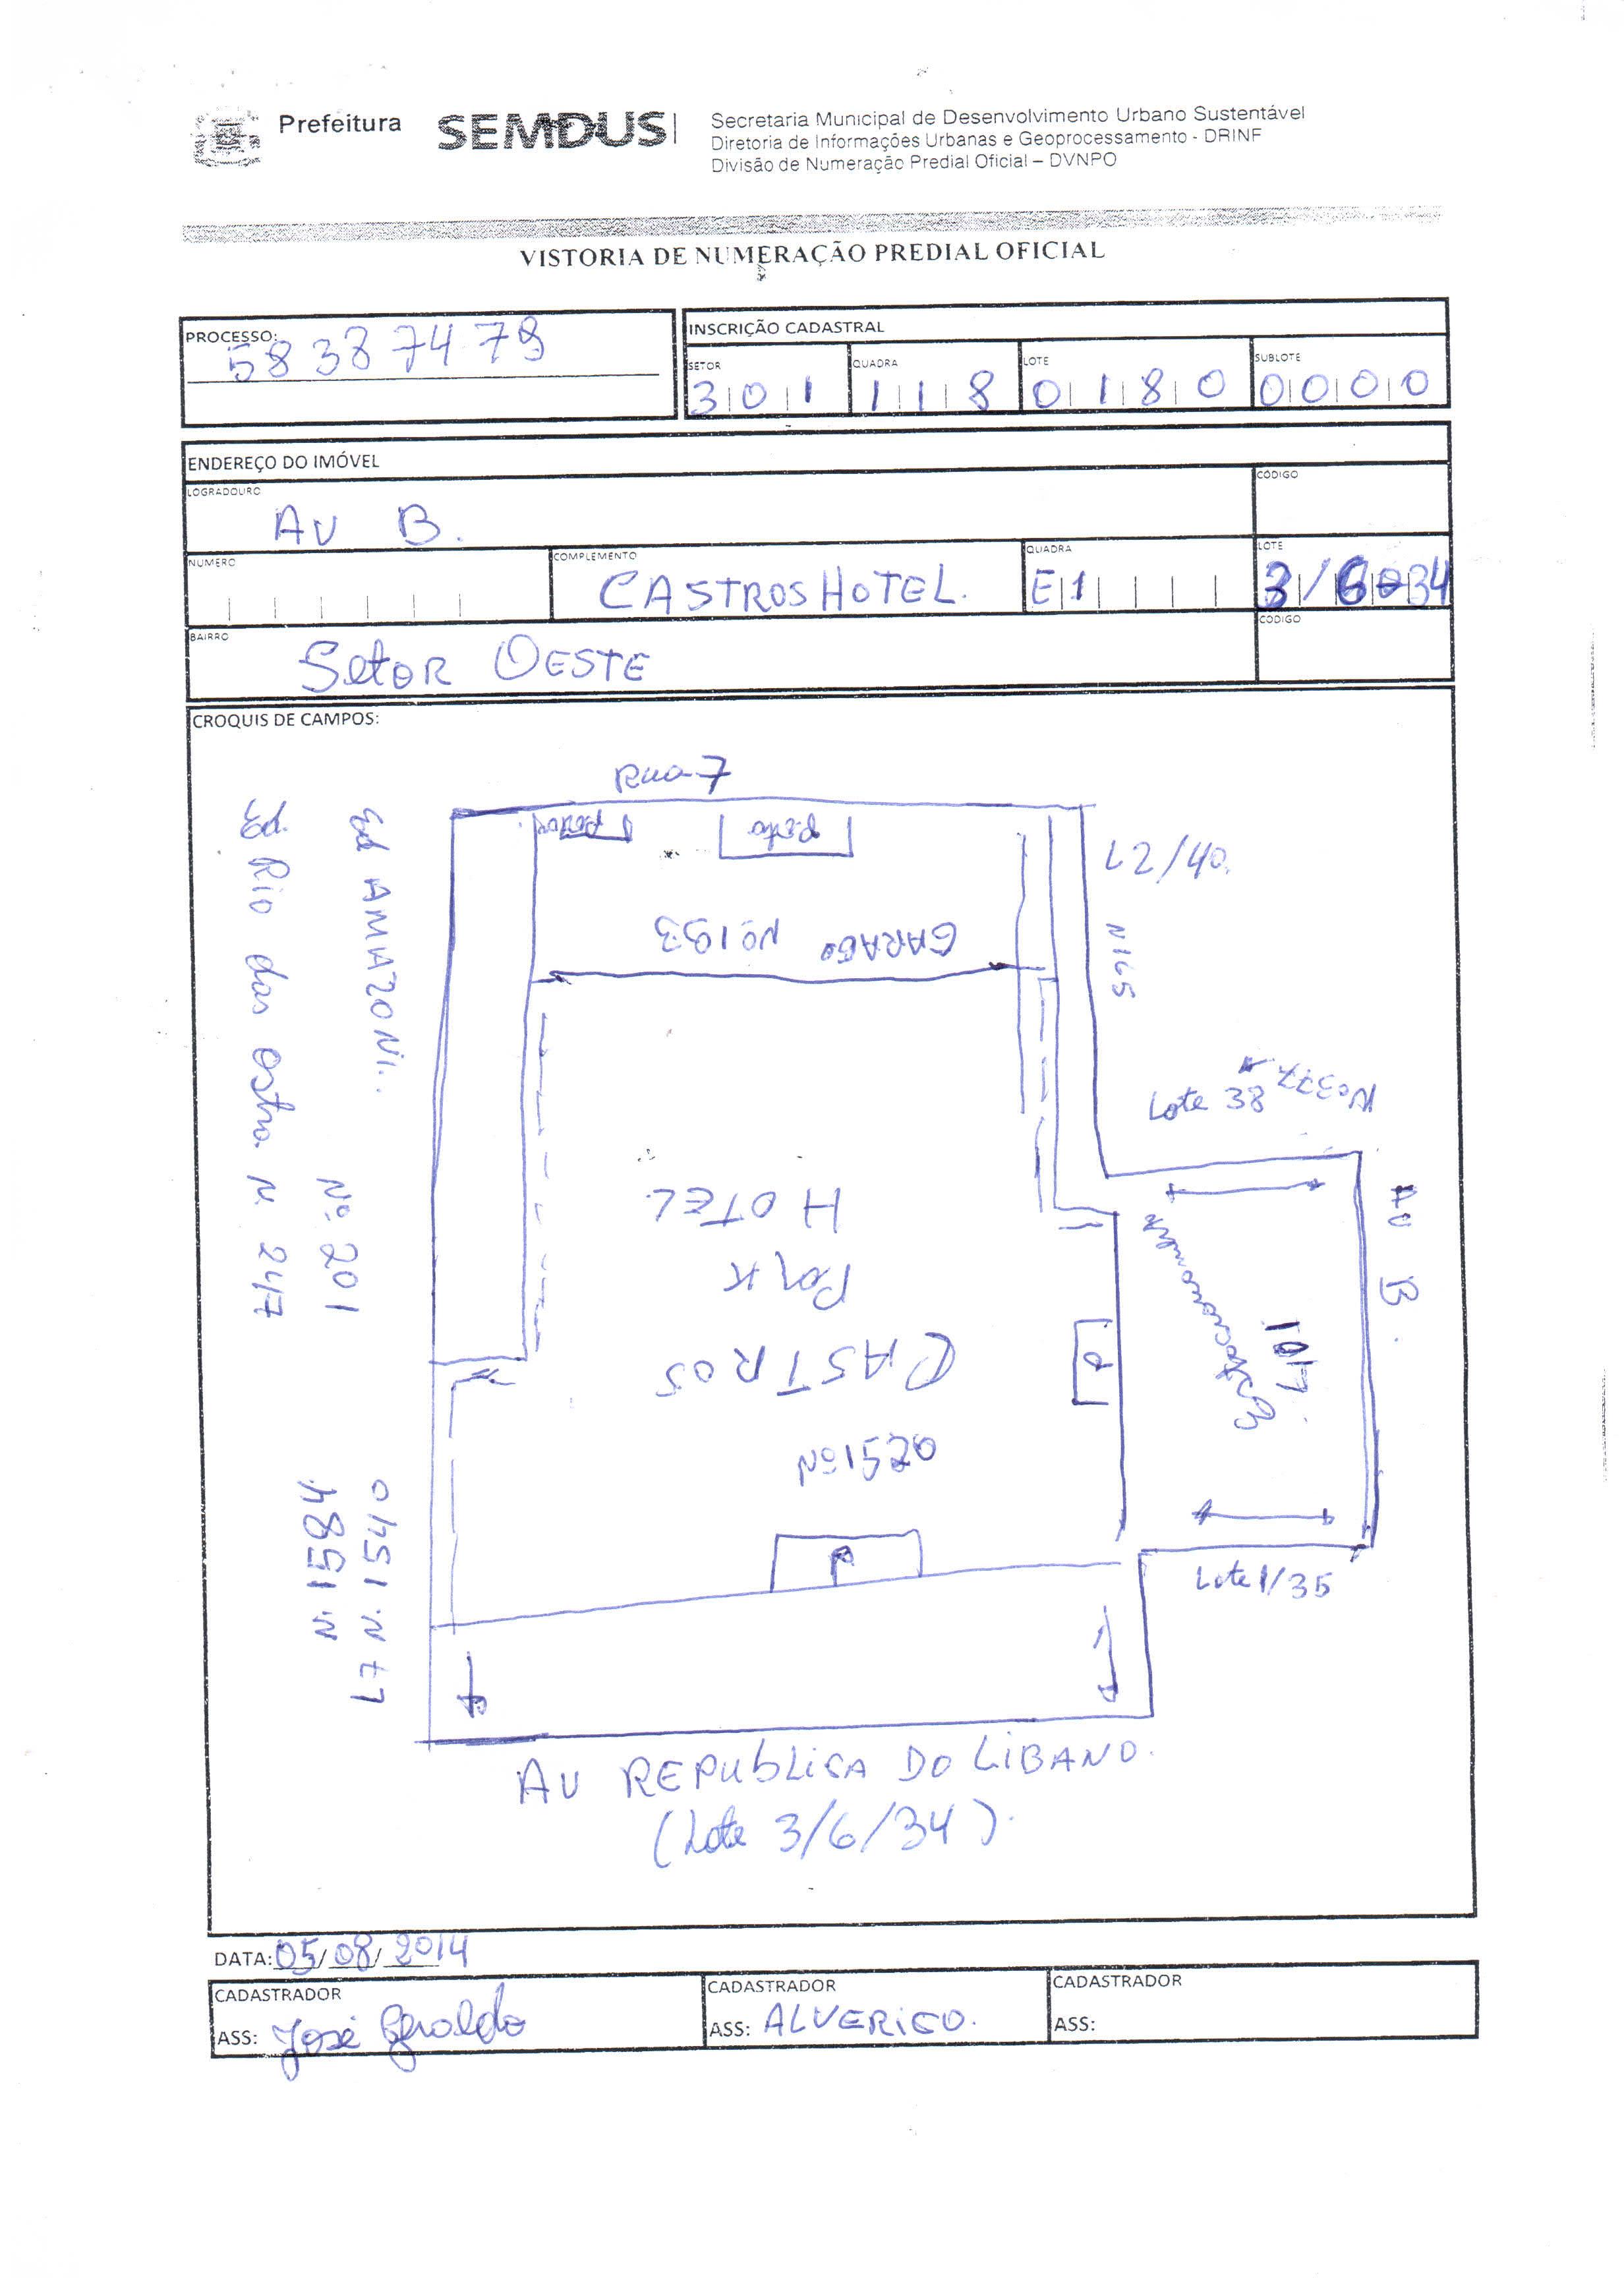 Prefeitura
SEMDUS
Secretaria Municipal de Desenvolvimento Urbano Sustentável
Diretoria de Informações Urbanas e Geoprocessamento - DRINF
Divisão de Numeração Predial Oficial – DVNPO
VISTORIA DE NUMERAÇÃO PREDIAL OFICIAL
PROCESSO: 58387479
INSCRIÇÃO CADASTRAL
SETOR QUADRA LOTE SUBLOTE
301 118 0180 0000
ENDEREÇO DO IMÓVEL
LOGRADOURO CÓDIGO
AV B.
NUMERO COMPLEMENTO QUADRA LOTE
CASTROS HOTEL. E1 3/6-34
BAIRRO CODIGO
Setor OESTE
CROQUIS DE CAMPOS:
Rua 7
L2/40.
Nº 193
N165
Ed AMAZONI..
Nº 201
Ed. Rio das ostra N. 247
Lote 38
Nº 377
HOTEL
Park
CASTROS
Nº 1520
P
Estacionamento
401
AV B.
P
N 1584
L7 N. 1540
Lote 1/35
AV REPUBLICA DO LIBANO.
(Lote 3/6/34).
DATA: 05/08/2014
CADASTRADOR
ASS: José Geraldo
CADASTRADOR
ASS: ALVERICO.
CADASTRADOR
ASS: